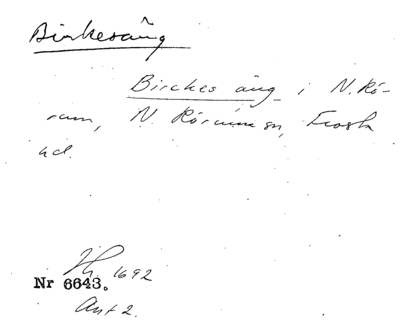 Birkesäng
Birckes äng i N. Rö-
rum, N. Rörums sn, Frosta
hd.
1692
Nr 6643.
Ant 2.